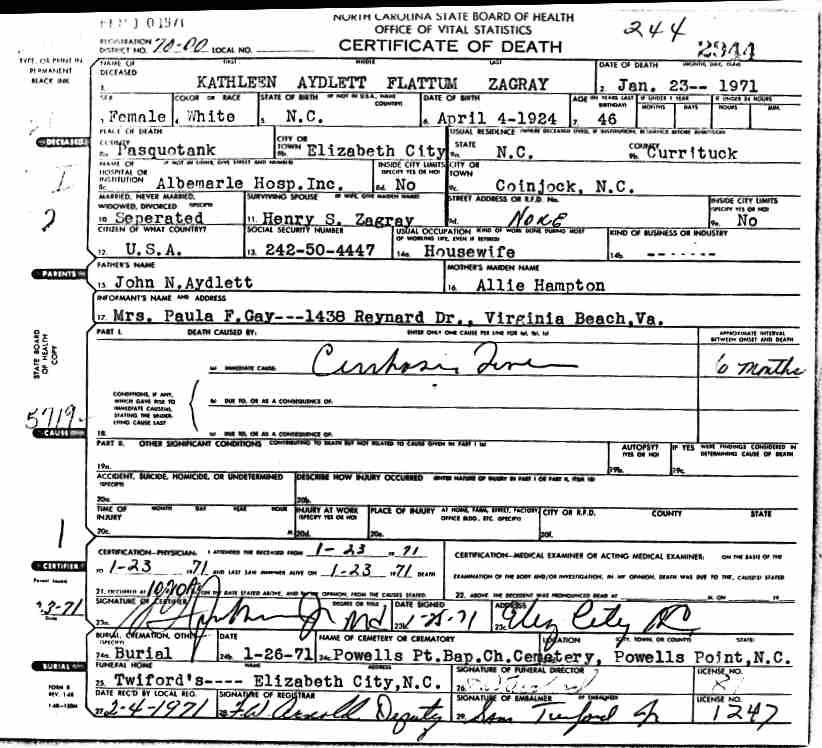 NORTH CAROLINA STATE BOARD OF HEALTH
OFFICE OF VITAL STATISTICS
CERTIFICATE OF DEATH
244
2944
FEB 1971
REGISTRATION DISTRICT NO. 70-00 LOCAL NO.
TYPE, OR PRINT IN PERMANENT BLACK INK
NAME OF DECEASED FIRST MIDDLE LAST
1. KATHLEEN AYDLETT FLATTUM ZAGRAY
DATE OF DEATH (MONTH, DAY, YEAR)
2. Jan. 23-- 1971
SEX
3. Female
COLOR OR RACE
4. White
STATE OF BIRTH (IF NOT IN U.S.A., NAME COUNTRY)
5. N.C.
DATE OF BIRTH
6. April 4-1924
AGE (IN YEARS LAST BIRTHDAY)
7. 46
IF UNDER 1 YEAR MONTHS DAYS
IF UNDER 24 HOURS HOURS MIN.
DECEASED
PLACE OF DEATH
COUNTY
8a. Pasquotank
CITY OR TOWN
8b. Elizabeth City
USUAL RESIDENCE (WHERE DECEASED LIVED, IF INSTITUTION, RESIDENCE BEFORE ADMISSION)
STATE
9a. N.C.
COUNTY
9b. Currituck
NAME OF HOSPITAL OR INSTITUTION (IF NOT IN EITHER, GIVE STREET AND NUMBER)
8c. Albemarle Hosp.Inc.
INSIDE CITY LIMITS (SPECIFY YES OR NO)
8d. No
CITY OR TOWN
9c. Coinjock, N.C.
MARRIED, NEVER MARRIED, WIDOWED, DIVORCED (SPECIFY)
10. Seperated
SURVIVING SPOUSE (IF WIFE, GIVE MAIDEN NAME)
11. Henry S. Zagray
STREET ADDRESS OR R.F.D. No.
9d. None
INSIDE CITY LIMITS (SPECIFY YES OR NO)
9e. No
CITIZEN OF WHAT COUNTRY?
12. U.S.A.
SOCIAL SECURITY NUMBER
13. 242-50-4447
USUAL OCCUPATION (KIND OF WORK DONE DURING MOST OF WORKING LIFE, EVEN IF RETIRED)
14a. Housewife
KIND OF BUSINESS OR INDUSTRY
14b. -------
PARENTS
FATHER'S NAME
15. John N.Aydlett
MOTHER'S MAIDEN NAME
16. Allie Hampton
INFORMANT'S NAME AND ADDRESS
17. Mrs. Paula F.Gay---1438 Reynard Dr., Virginia Beach,Va.
STATE BOARD OF HEALTH COPY
PART I. DEATH CAUSED BY: ENTER ONLY ONE CAUSE PER LINE FOR (a), (b), (c)
APPROXIMATE INTERVAL BETWEEN ONSET AND DEATH
(a) IMMEDIATE CAUSE: Cirrhosis Liver
6 months
CONDITIONS, IF ANY, WHICH GAVE RISE TO IMMEDIATE CAUSE(a), STATING THE UNDERLYING CAUSE LAST
(b) DUE TO, OR AS A CONSEQUENCE OF:
(c) DUE TO, OR AS A CONSEQUENCE OF:
18.
5719-
CAUSE
PART II. OTHER SIGNIFICANT CONDITIONS CONTRIBUTING TO DEATH BUT NOT RELATED TO CAUSE GIVEN IN PART I (a)
19a.
AUTOPSY? (YES OR NO)
19b.
IF YES WERE FINDINGS CONSIDERED IN DETERMINING CAUSE OF DEATH
19c.
ACCIDENT, SUICIDE, HOMICIDE, OR UNDETERMINED (SPECIFY)
20a.
DESCRIBE HOW INJURY OCCURRED (ENTER NATURE OF INJURY IN PART I OR PART II, ITEM 18)
20b.
TIME OF INJURY MONTH DAY YEAR HOUR
20c. M
INJURY AT WORK (SPECIFY YES OR NO)
20d.
PLACE OF INJURY AT HOME, FARM, STREET, FACTORY, OFFICE BLDG., ETC. (SPECIFY)
20e.
CITY OR R.F.D. COUNTY STATE
20f.
1
CERTIFIER
CERTIFICATION—PHYSICIAN: I ATTENDED THE DECEASED FROM 1-23 1971
TO 1-23 1971 AND LAST SAW HIM/HER ALIVE ON 1-23 1971 DEATH
21. OCCURRED AT ON THE DATE STATED ABOVE, AND IN MY OPINION, FROM THE CAUSES STATED.
CERTIFICATION—MEDICAL EXAMINER OR ACTING MEDICAL EXAMINER: ON THE BASIS OF THE
EXAMINATION OF THE BODY AND/OR INVESTIGATION, IN MY OPINION, DEATH WAS DUE TO THE CAUSE(S) STATED
22. ABOVE. THE DECEDENT WAS PRONOUNCED DEAD AT M. ON 19
3-71
SIGNATURE OF CERTIFIER
23a.
DEGREE OR TITLE
MD
DATE SIGNED
23b. 1-25-71
ADDRESS
23c. Eliz City NC
BURIAL, CREMATION, OTHER (SPECIFY)
24a. Burial
DATE
24b. 1-26-71
NAME OF CEMETERY OR CREMATORY
24c. Powells Pt.Bap.Ch.Cemetery,
LOCATION (CITY, TOWN, OR COUNTY) STATE
Powells Point,N.C.
BURIAL
FUNERAL HOME NAME ADDRESS
25. Twiford's---- Elizabeth City,N.C.
SIGNATURE OF FUNERAL DIRECTOR
26.
LICENSE NO.
DATE REC'D BY LOCAL REG.
27. 2-4-1971
SIGNATURE OF REGISTRAR
28. F.W. Arnold Deputy
SIGNATURE OF EMBALMER (IF EMBALMED)
29. Sam Twiford Jr
LICENSE NO.
1247
FORM 8
REV. 1-68